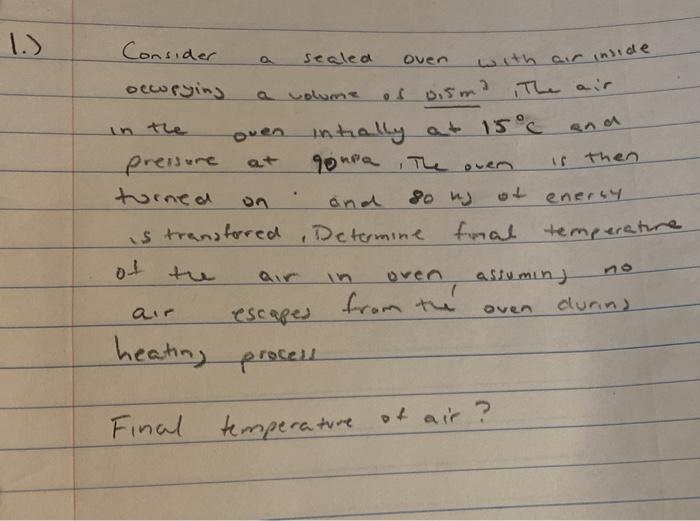 1.) Consider a sealed oven with air inside
occupying a volume of 0.5m³. The air
in the oven intially at 15°C and
pressure at 90 kPa. The oven is then
turned on and 80 kJ of energy
is transfored. Determine final temperature
of the air in oven assuming no
air escapes from the oven during
heating process
Final temperature of air?